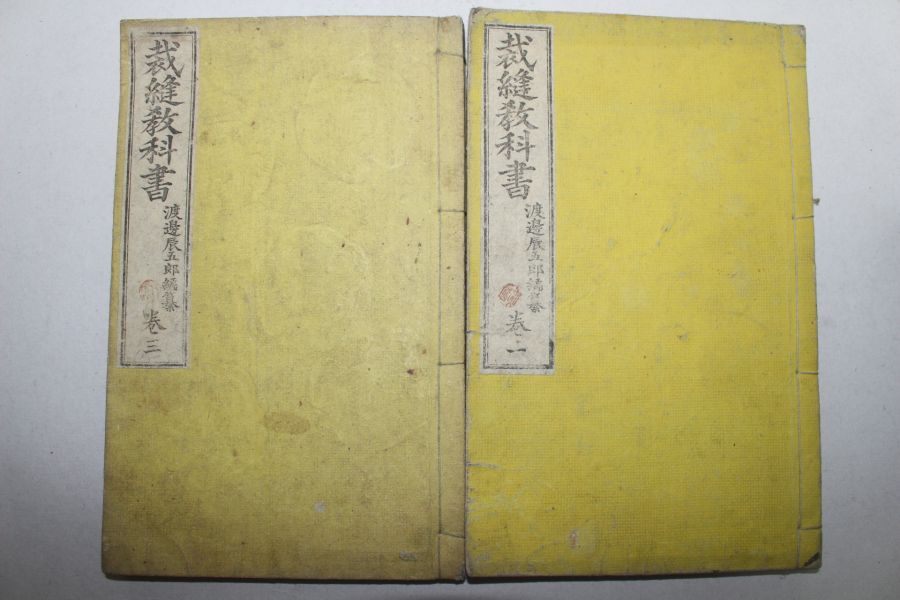 裁縫教科書
渡邊辰五郎編纂
卷一
裁縫教科書
渡邊辰五郎編纂
卷三